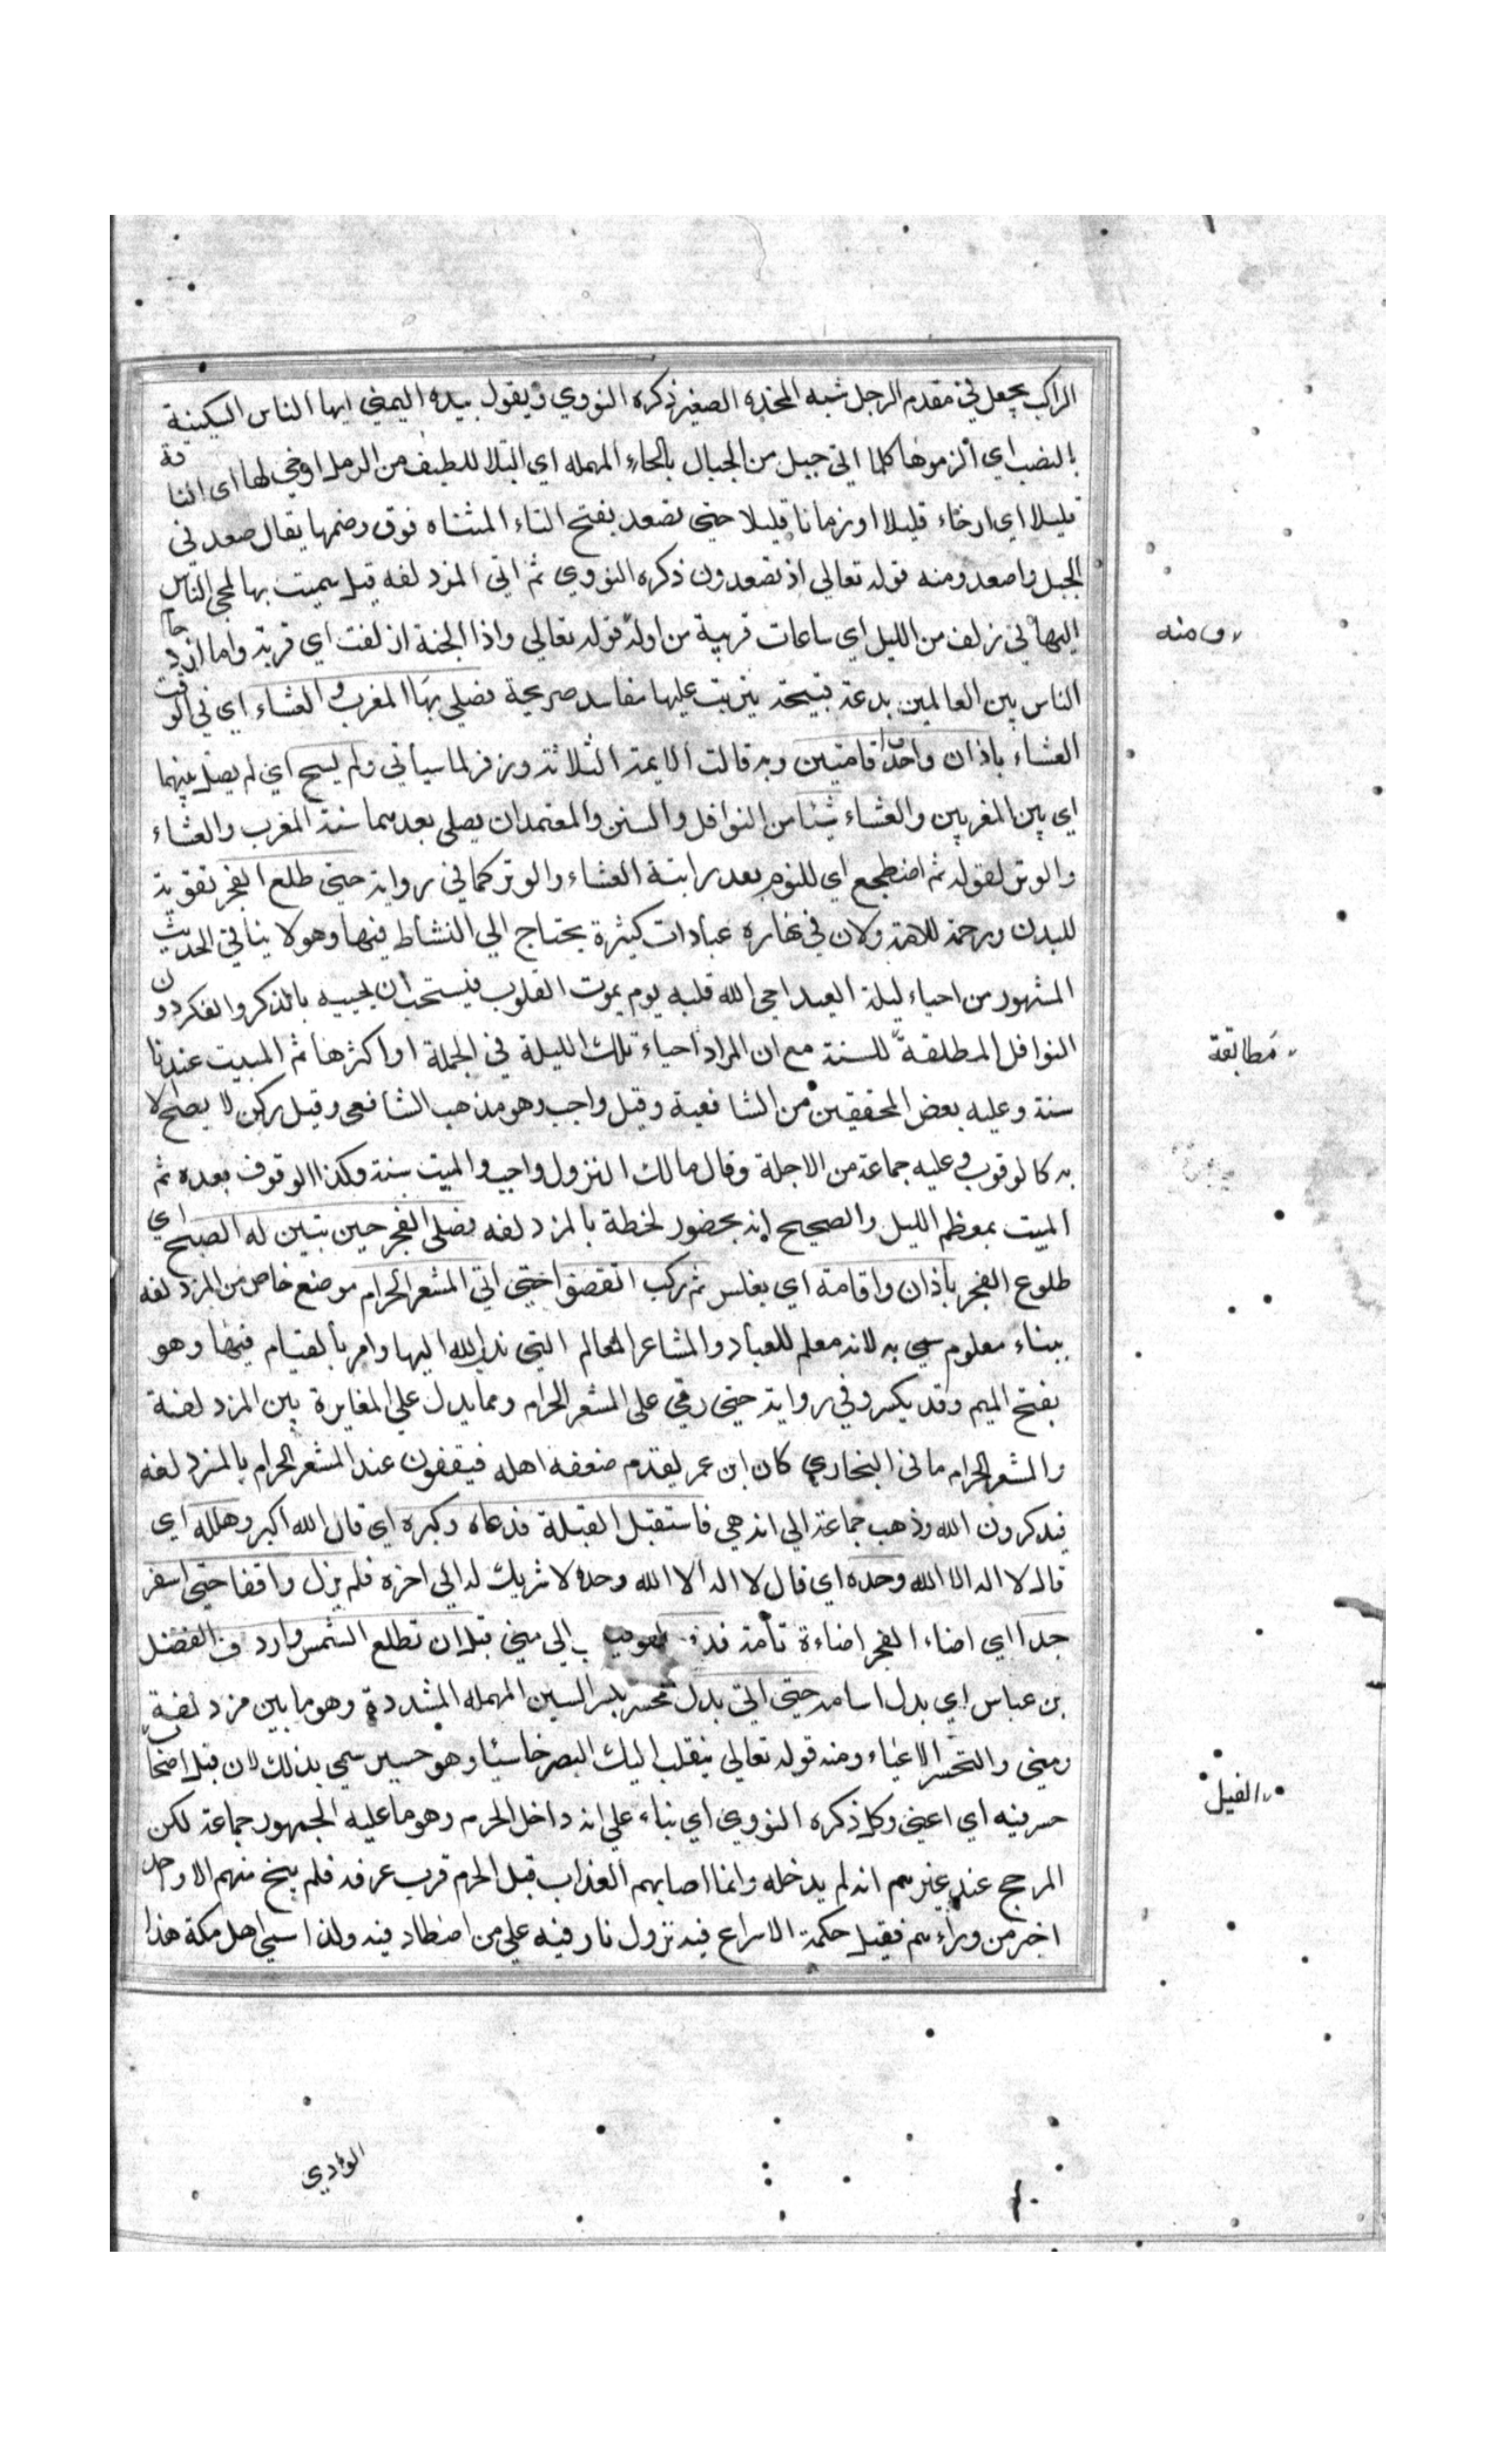 الراكب يجعل في مقدم الرجل شبه المخده الصغير ذكره النووي ويقول بيده اليمنى ايها الناس السكينة
بالنصب اي الزموها كلما اتى حبل من الحبال بالحاء المهمله اي التلال للطيف من الرمل ارخى لها اى الناقة
قليلا اي ارخاء قليلا او زمانا قليلا حتى تصعد بفتح التاء المثناه فوق وضمها يقال صعد في
الجبل واصعد ومنه قوله تعالي اذ تصعدون ذكره النووي ثم اتى المزدلفه قيل سميت بها لمجى الناس
اليها في زلف من الليل اي ساعات قريبة من اوله قوله تعالي واذا الجنة ازلفت اي قربت واما ازدحام
الناس بين العالمين بدعة قبيحة يترتب عليها مفاسد صريحة فصلى بها المغرب والعشاء اي في الوقت
العشاء باذان واحد واقامتين وبه قالت الايمة الثلاثة وزفر لما سياتي ولم يسبح اي لم يصل بينهما
اي بين المغربين والعشاء شيئا من النوافل والسنن والمعتمد ان يصلى بعدهما سنة المغرب والعشاء
والوتر لقوله ثم اضطجع اي للنوم بعد راتبة العشاء والوتر كما في رواية حتى طلع الفجر تقوية
للبدن ورحمة للامة ولان في نهاره عبادات كثيرة يحتاج الي النشاط فيها وهو لا ينافي الحديث
المشهور من احياء ليلة العيد احى الله قلبه يوم يموت القلوب فيستحب ان يحييه بالذكر والفكر دون
النوافل المطلقة للسنة مع ان المراد احياء تلك الليلة في الجملة او اكثرها ثم المبيت عندنا
سنة وعليه بعض المحققين من الشافعية وقيل واجب وهو مذهب الشافعى وقيل ركن لا يصح الا
به كالوقوف وعليه جماعة من الاجلة وقال مالك النزول واجب والمبيت سنة وكذا الوقوف بعده ثم
المبيت بمعظم الليل والصحيح انه بحضور لحظة بالمزدلفه فصلى الفجر حين تبين له الصبح اي
طلوع الفجر باذان واقامة اي بغلس ثم ركب القصوا حتى اتى المشعر الحرام موضع خاص من المزدلفه
ببناء معلوم سمي به لانه معلم للعباد والمشاعر المعالم التي ندب الله اليها وامر بالقيام فيها وهو
بفتح الميم وقد يكسر وفي رواية حتى رقى على المشعر الحرام ومما يدل علي المغايرة بين المزدلفة
والمشعر الحرام ما في البخاري كان ابن عمر يقدم ضعفه اهله فيقفون عند المشعر الحرام بالمزدلفه
فيذكرون الله وذهب جماعة الي انه هي فاستقبل القبلة فدعاه وكبره اي قال الله اكبر وهلله اي
قال لا اله الا الله وحده اي قال لا اله الا الله وحده لا شريك له الي اخره فلم يزل واقفا حتى اسفر
جدا اي اضاء الفجر اضاءة تامة الي منى قبل ان تطلع الشمس واردف الفضل
بن عباس اي بدل اسامة حتى اتى محسر بكسر السين المهمله المشددة وهو ما بين مزدلفة
ومنى والتحسر الاعياء ومنه قوله تعالي ينقلب اليك البصر خاسئا وهو حسير سمي بذلك لان قيل اصحاب
حسر فيه اي اعيى وكل ذكره النووي اي بناء علي انه داخل الحرم وهو ما عليه الجمهور جماعة لكن
المرجح عند غيرهم انه لم يدخله وانما اصابهم العذاب قبل الحرم قرب عرفه فلم ينج منهم الا واحد
اخبر من وراءهم فقيل حكمة الاسراع فيه نزول نار فيه علي من اصطاد فيه ولذا سمي اهل مكة هذا
الوادي
ومنه
مطابقة
الفيل